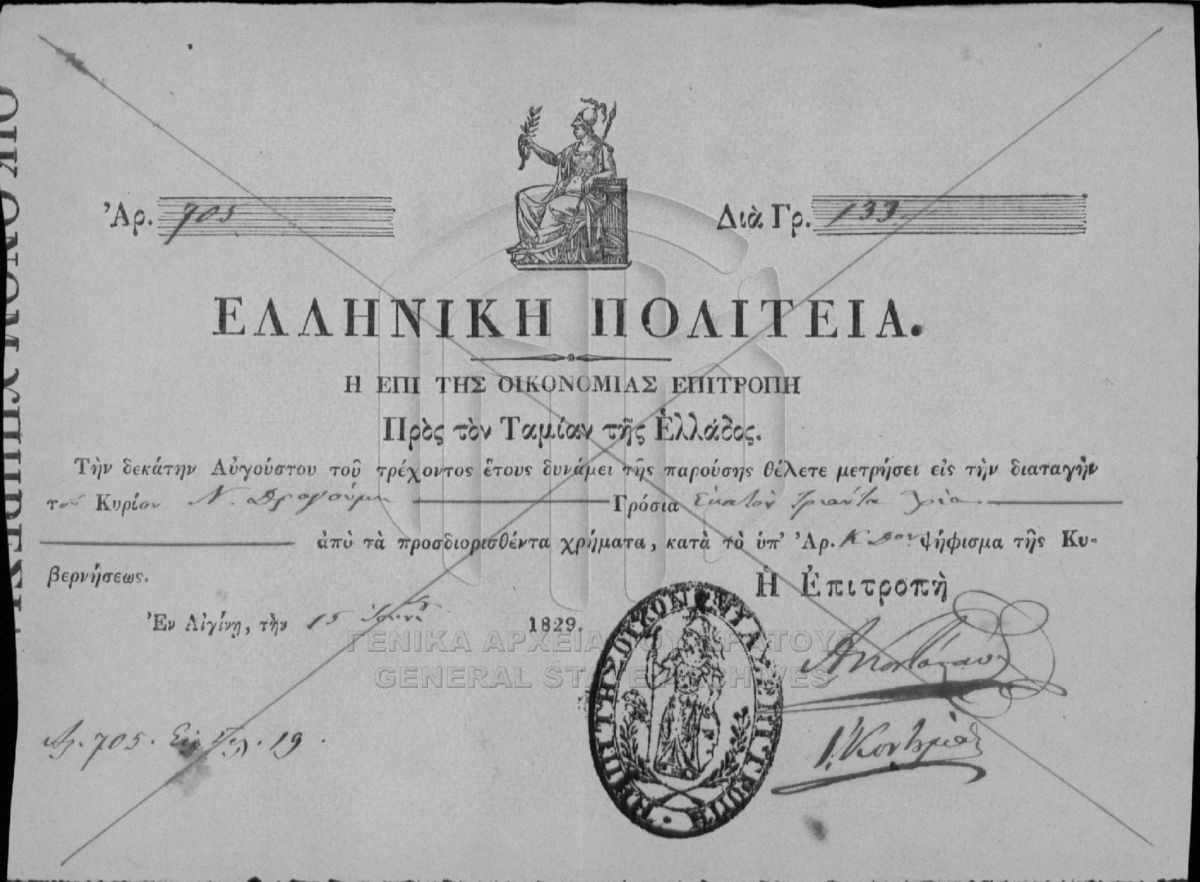 Ἀρ. 705
Διὰ Γρ. 133
ΕΛΛΗΝΙΚΗ ΠΟΛΙΤΕΙΑ.
Η ΕΠΙ ΤΗΣ ΟΙΚΟΝΟΜΙΑΣ ΕΠΙΤΡΟΠΗ
Πρὸς τὸν Ταμίαν τῆς Ἑλλάδος.
Τὴν δεκάτην Αὐγούστου τοῦ τρέχοντος ἔτους δυνάμει τῆς παρούσης θέλετε μετρήσει εἰς τὴν διαταγὴν
τοῦ Κυρίου Ν. Δραγούμη Γρόσια Ἑκατὸν τριάντα τρία
ἀπὸ τὰ προσδιορισθέντα χρήματα, κατὰ τὸ ὑπ' Ἀρ. ψήφισμα τῆς Κυ-
βερνήσεως.
Ἡ Ἐπιτροπὴ
Ἐν Αἰγίνῃ, τὴν 15 1829.
ΓΕΝΙΚΑ ΑΡΧΕΙΑ ΤΟΥ ΚΡΑΤΟΥΣ
GENERAL STATE ARCHIVES
Η ΕΠΙ ΤΗΣ ΟΙΚΟΝΟΜΙΑΣ ΕΠΙΤΡΟΠΗ
Ἀρ. 705. 19.